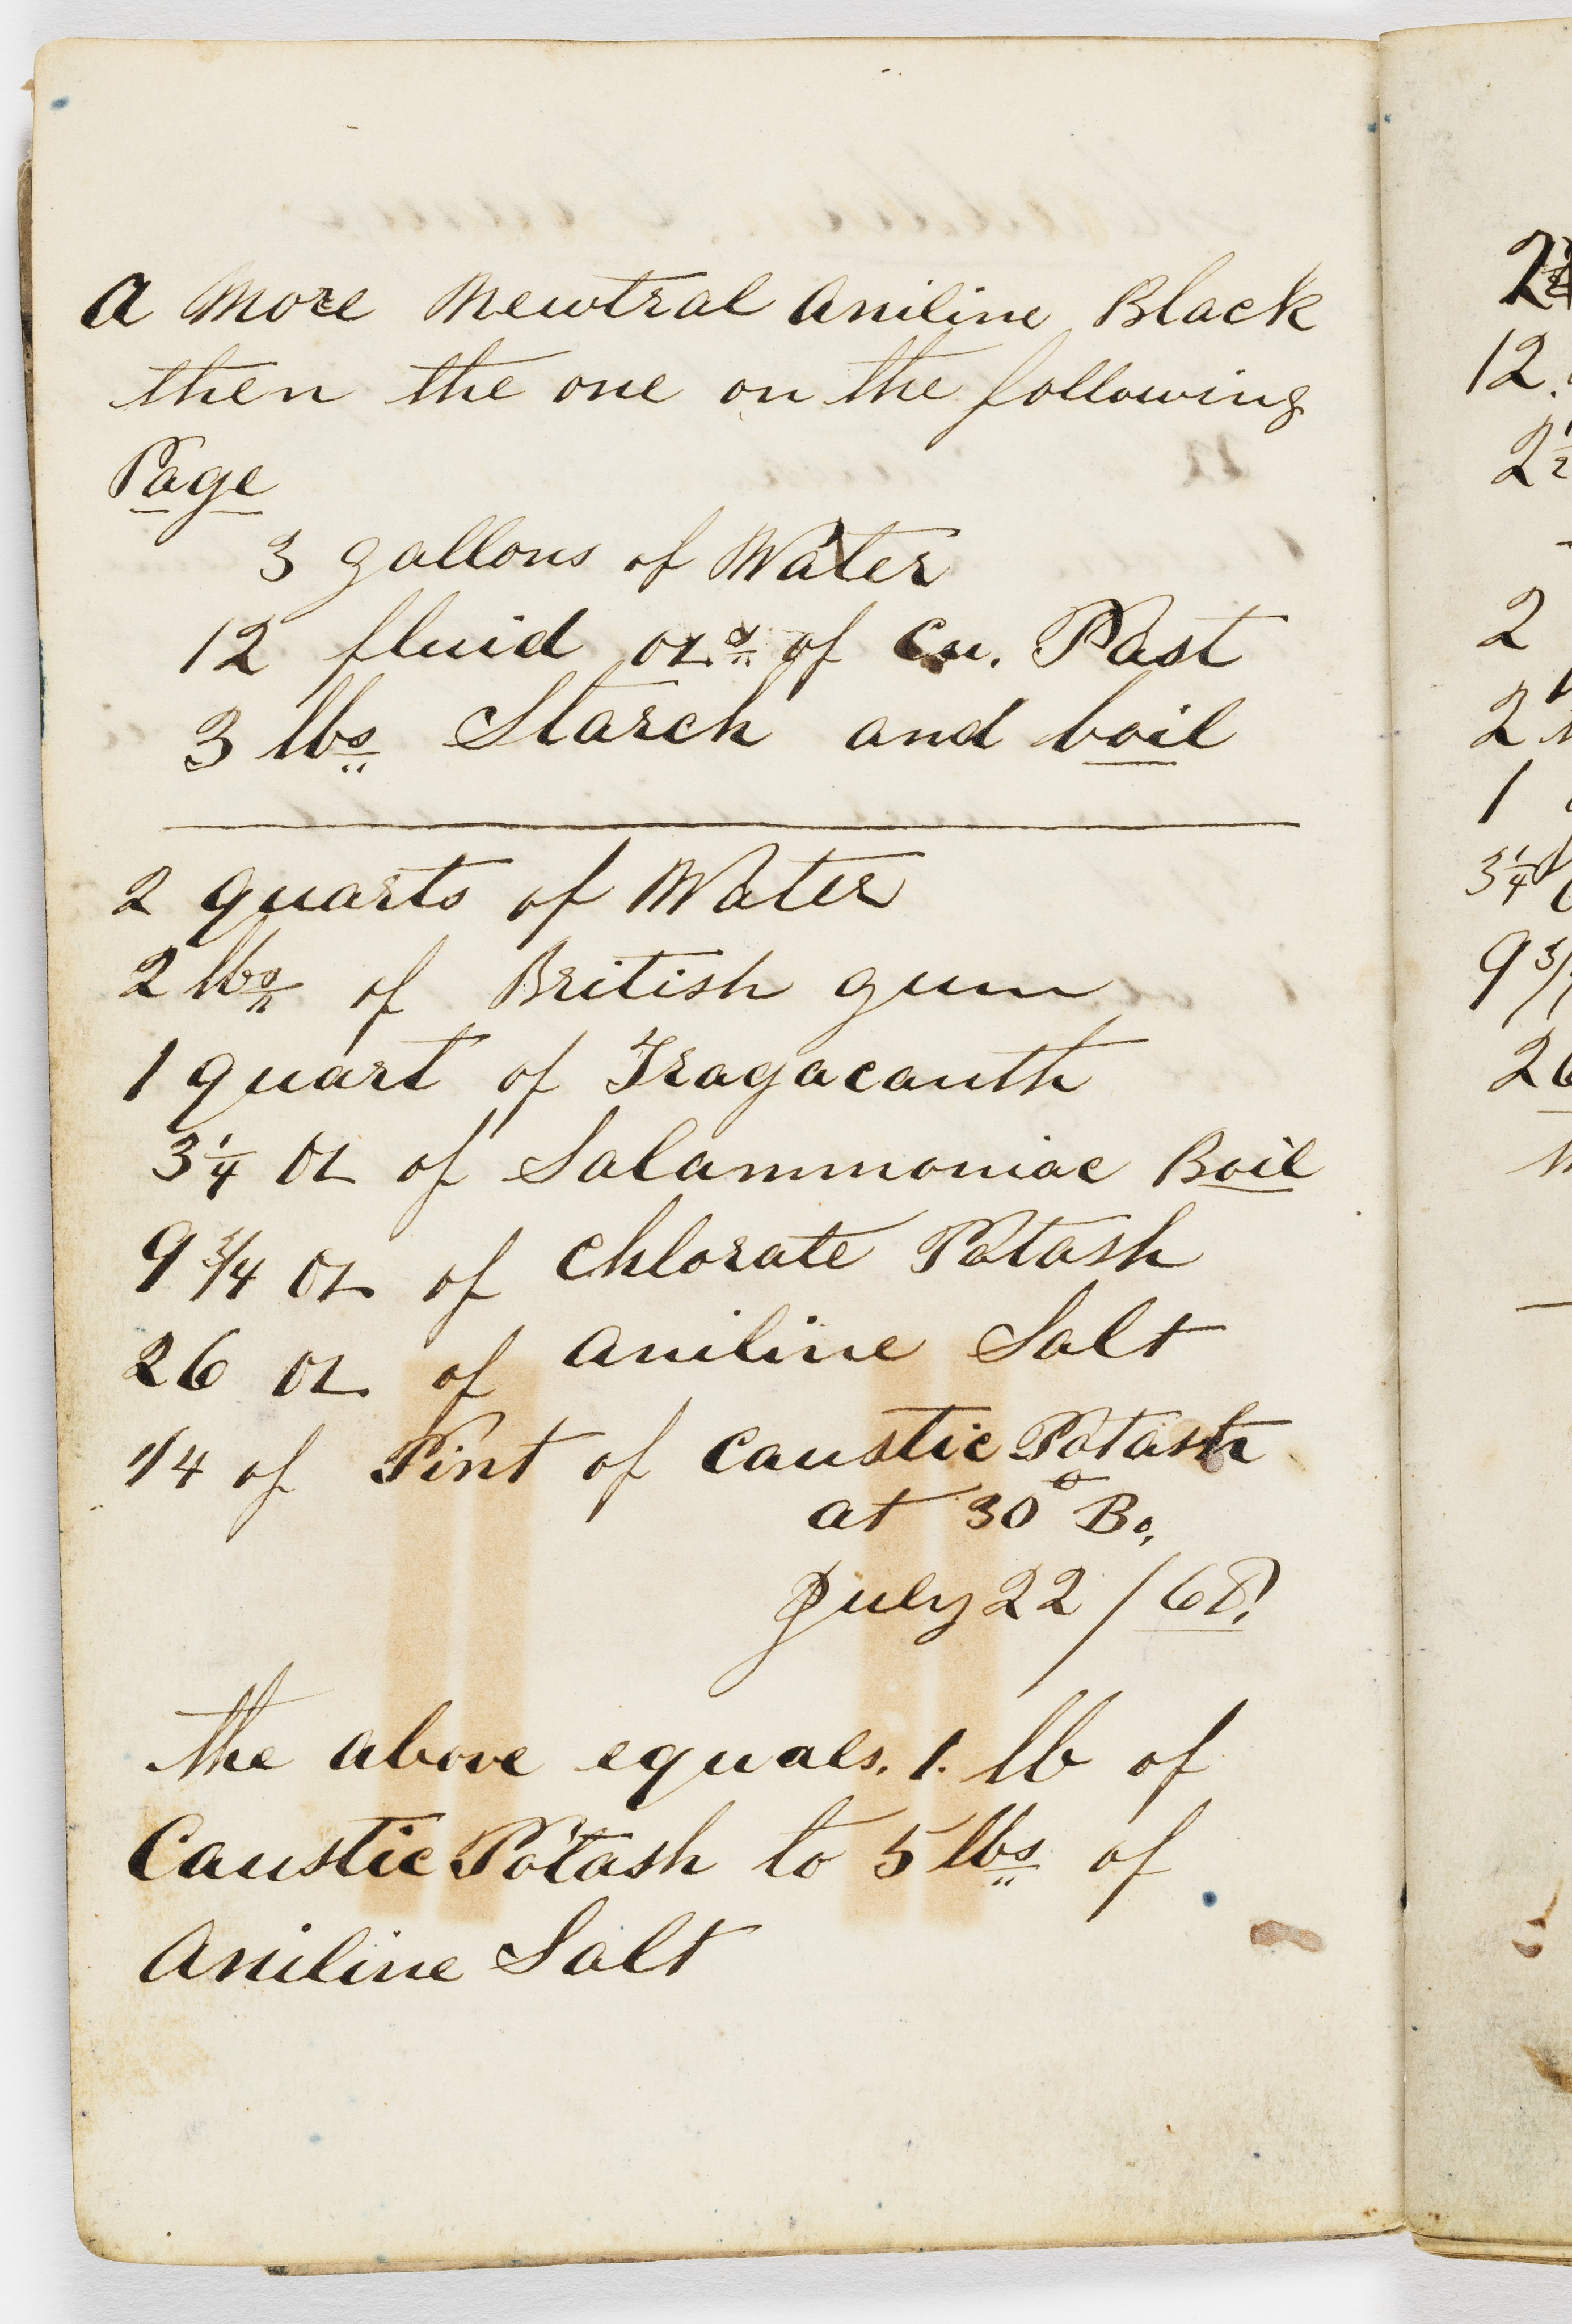 A More Newtral Aniline Black
then the one on the following
Page
3 gallons of Water
12 fluid ozs of Cu. Past
3 lbs Starch and boil
2 quarts of Water
2 lbs of British gum
1 quart of Tragacanth
3 1/4 oz of Salammoniac Boil
9 3/4 oz of Chlorate Potash
26 oz of Aniline Salt
1/4 of Pint of Caustic Potash
at 30° Be,
July 22 / 68.
the above equals. 1. lb of
Caustic Potash to 5 lbs of
Aniline Salt
2
12.
2 1/2
2
2
1
3 1/4
9 3/
26